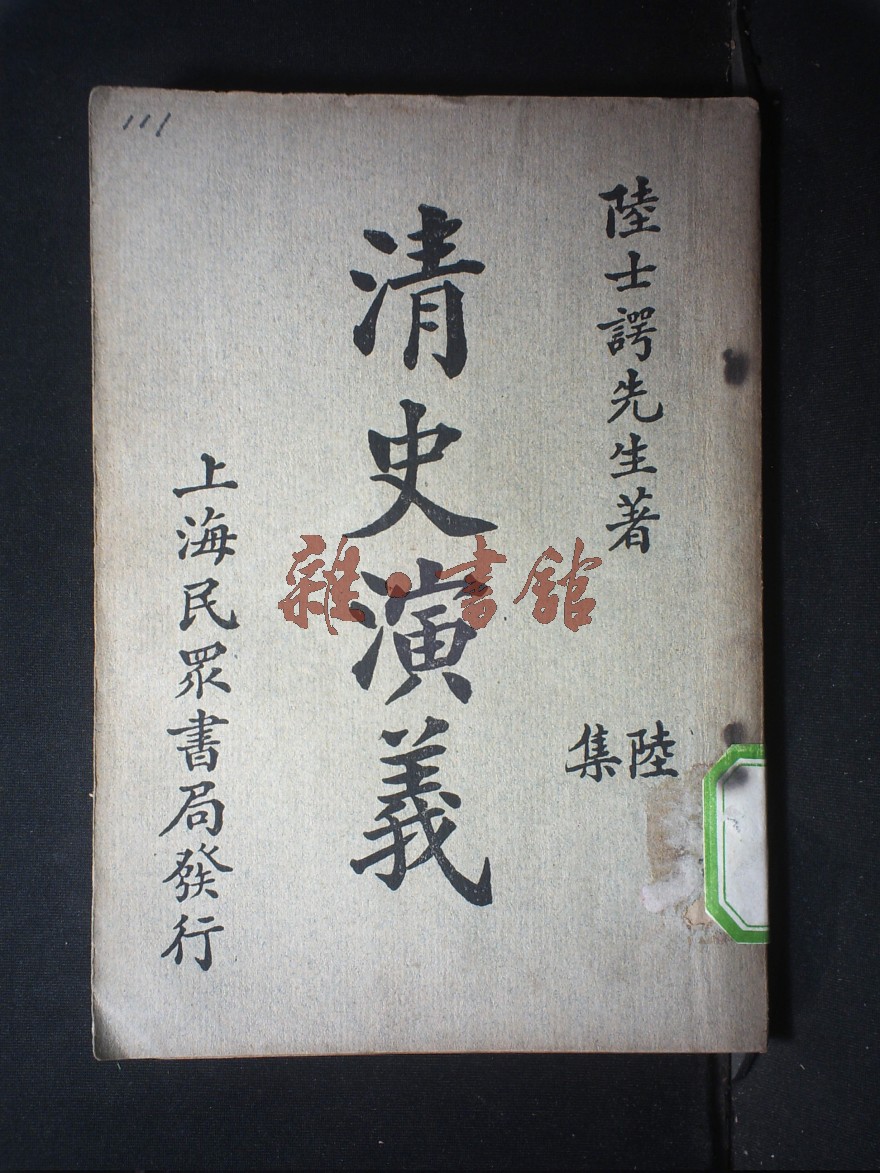 陸士諤先生著
陸集
清史演義
上海民眾書局發行
111
雜·書館